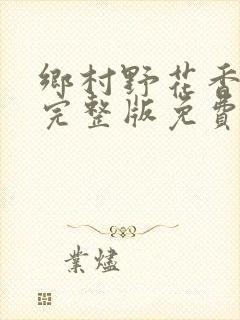 鄉村野花香
完整版免費
業燼